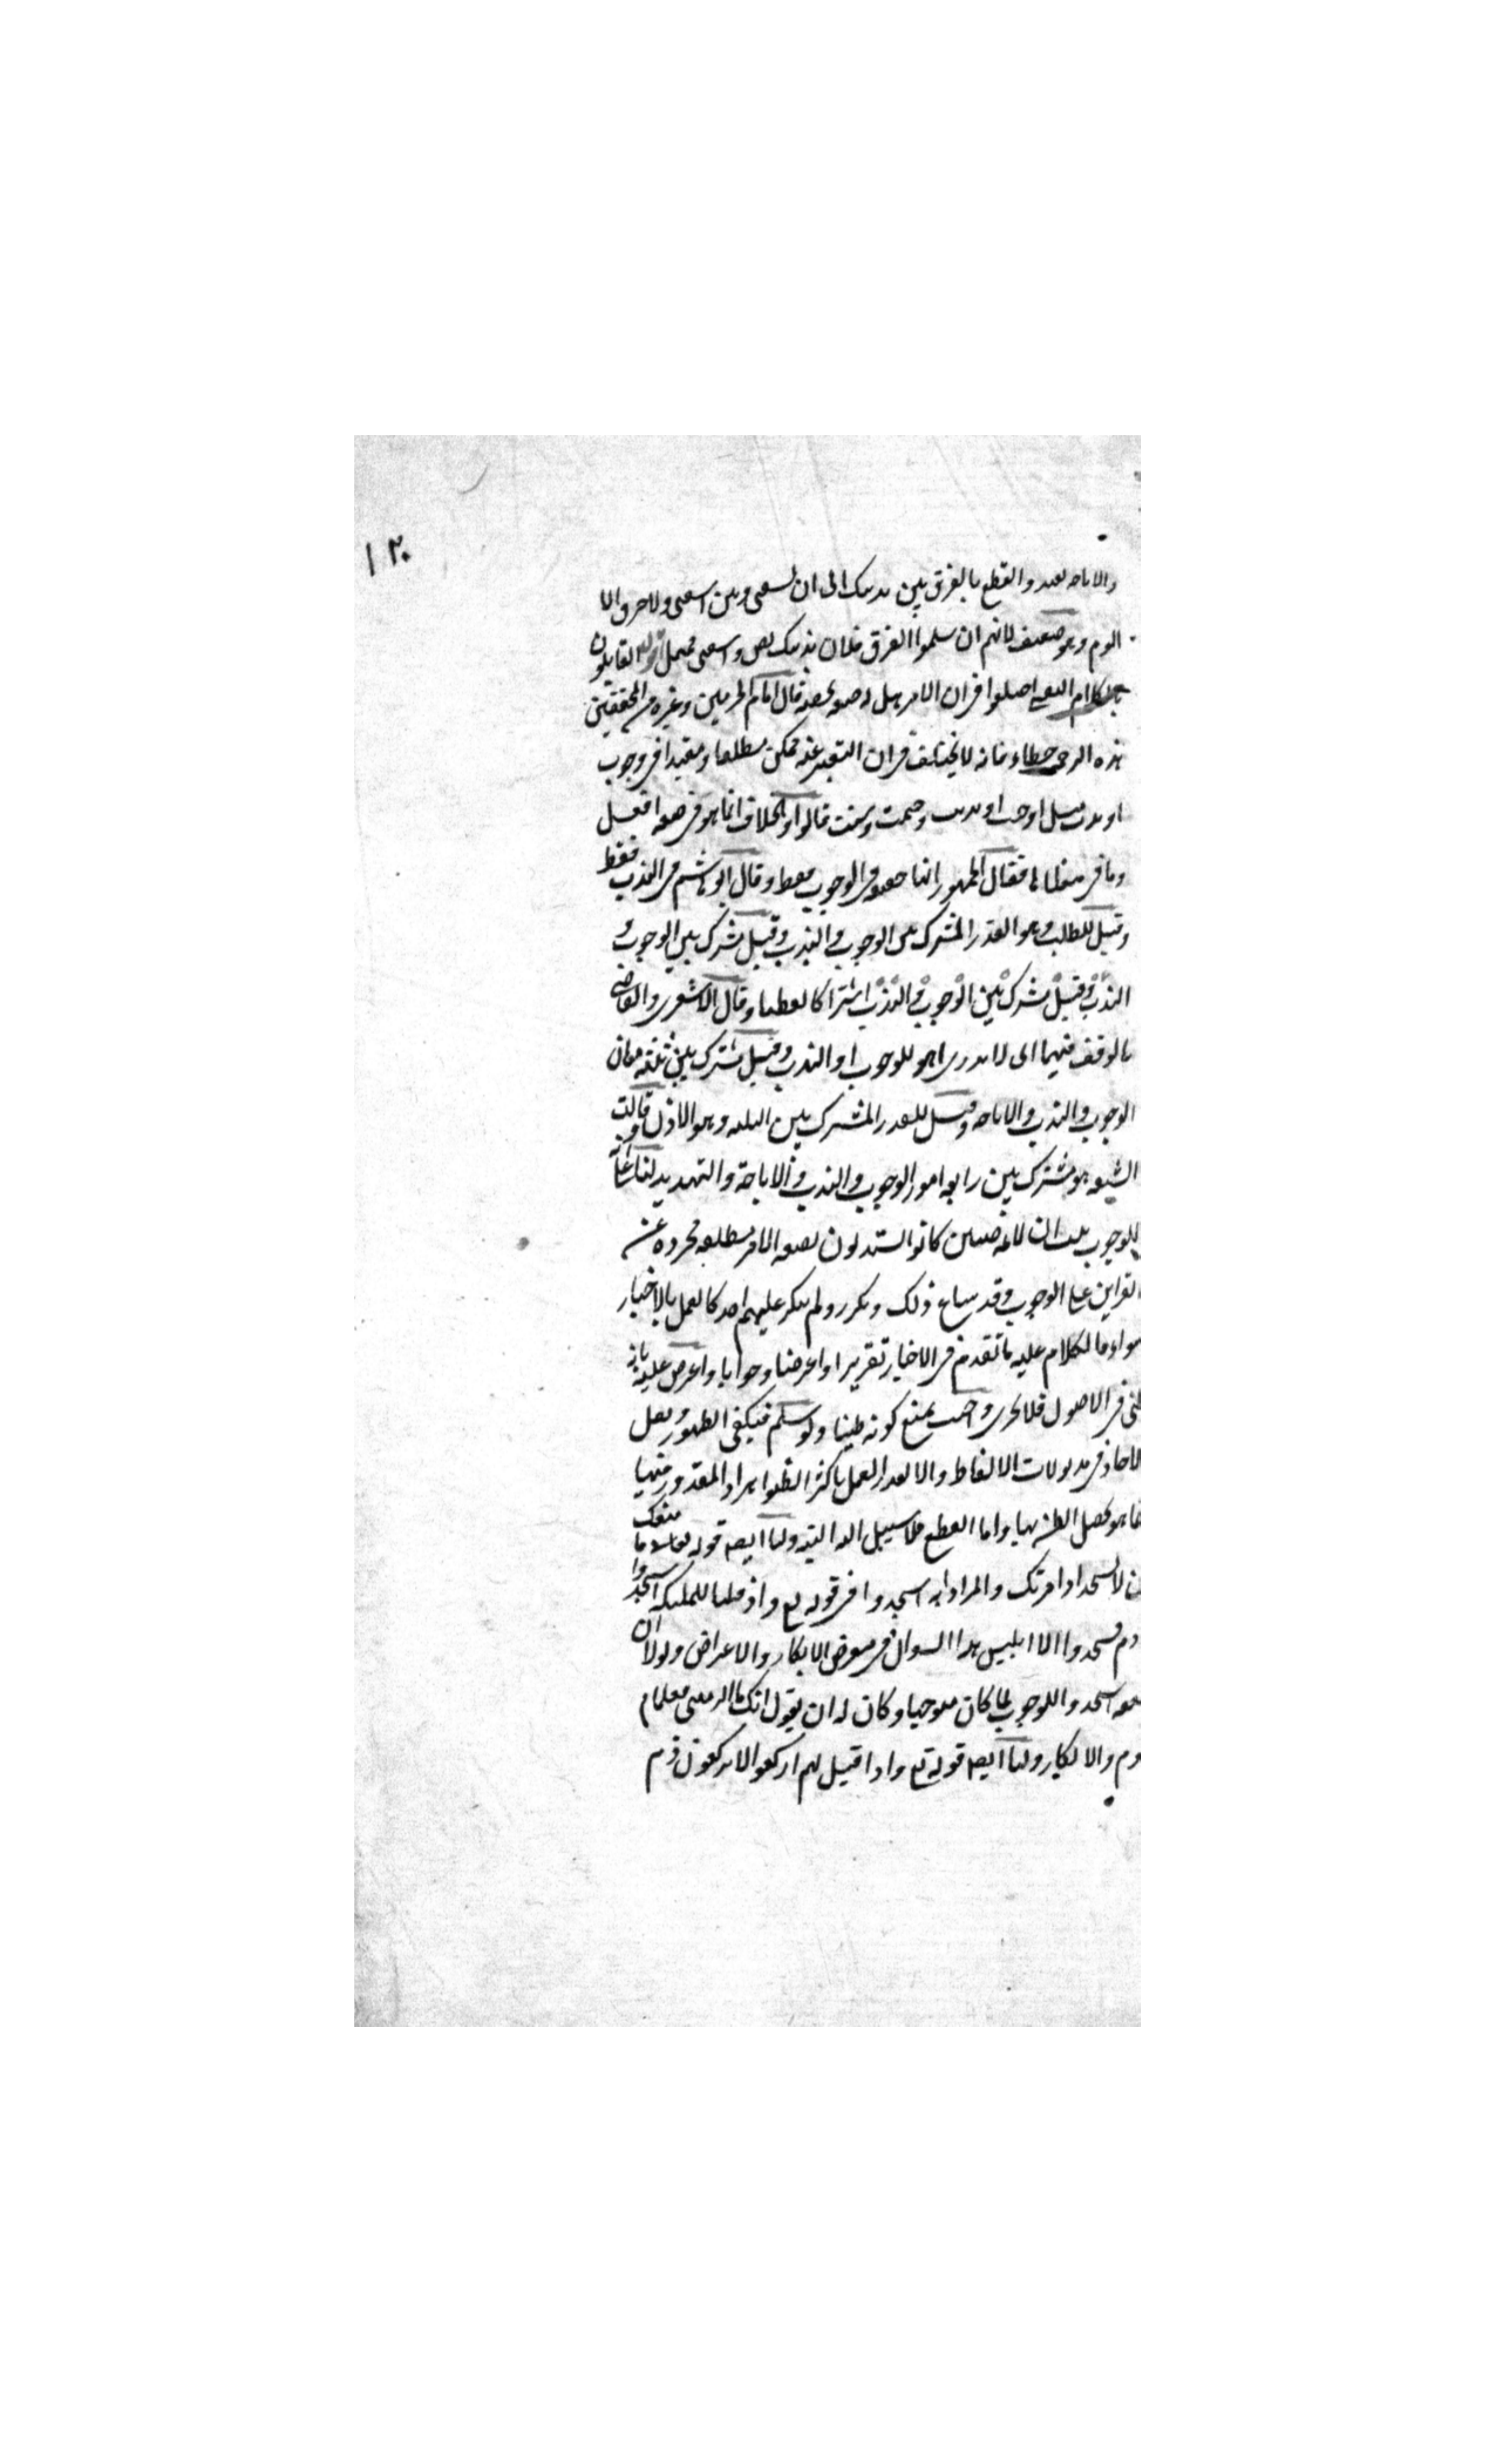 ١٢٠
والاباحه بعيد والقطع بالفرق بين ندبتك الى ان تسقى وبين اسقنى ولا فرق الا
اللوم وهو ضعيف لانهم ان سلموا الفرق فلان ندبتك نص واسقنى محتمل القايلون
بالكلام النفسى اختلفوا فى ان الامر هل له صيغه تخصه قال امام الحرمين وغيره من المحققين
هذه الترجمه خطاء فانه لا يختلف فى ان التعبير عنه ممكن مطلقا ومقيدا فى وجوب
او ندب مثل اوجبت او ندبت وحتمت وسننت قالوا والخلاف انما هو فى صيغه افعل
وما فى معناها فقال الجمهور انها حقيقه فى الوجوب فقط وقال ابو هاشم فى الندب فقط
وقيل للطلب وهو القدر المشترك بين الوجوب والندب وقيل مشترك بين الوجوب و
الندب وقيل مشترك بين الوجوب والندب اشتراكا لفظيا وقال الاشعرى والقاضى
بالوقف فيهما اى لا ندرى اهو للوجوب او الندب وقيل مشترك بين ثلثة معان
الوجوب والندب والاباحه وقيل للقدر المشترك بين الثلثه وهو الاذن وقالت
الشيعه هو مشترك بين اربعه امور الوجوب والندب والاباحة والتهديد لنا
للوجوب ان الائمه الماضين كانوا يستدلون بصيغه الامر مطلقه مجرده عن
القراين على الوجوب وقد شاع ذلك وتكرر ولم ينكر عليهم احد كالعمل بالاخبار
سواء والكلام عليه ما تقدم فى الاخبار تقريرا واعتراضا وجوابا واعترض عليه بانه
ظنى فى الاصول فلا يجزى واجيب بمنع كونه ظنيا ولو سلم فيكفى الظهور ونقل
الاحاد فى مدلولات الالفاظ والا تعذر العمل باكثر الظواهر اذ المقدور فيها
انما هو تحصيل الظن بها واما القطع فلا سبيل اليه البته ولنا ايضا قوله تعالى ما منعك
ان لا تسجد اذ امرتك والمراد به اسجدوا فى قوله تع واذ قلنا للملئكه اسجدوا
لادم فسجدوا الا ابليس هذا السوال فى معرض الانكار والاعتراض ولولا ان
صيغه اسجدوا للوجوب لما كان متوجها وكان له ان يقول انك ما الزمتنى فعلام
اللوم والانكار ولنا ايضا قوله تع واذا قيل لهم اركعوا لا يركعون ذم